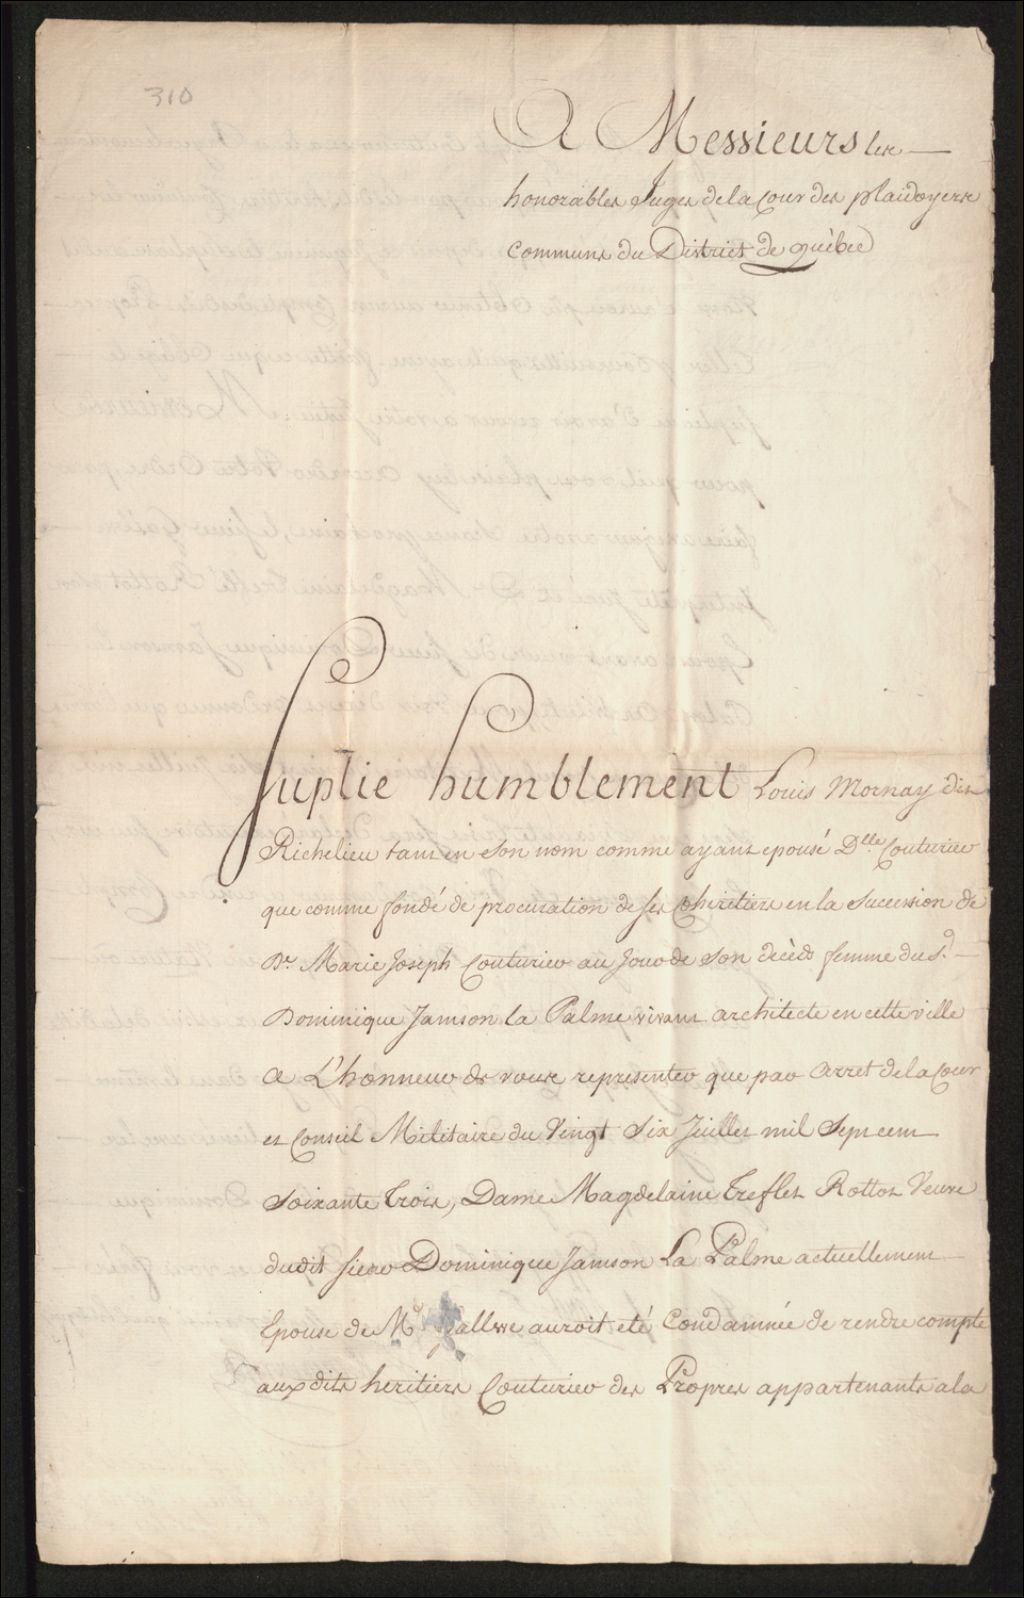 310
A Messieurs les
honorables Juges de la Cour des plaidoyers
communs du District de québec
Suplie humblement Louis Mornay dit
Richelieu tant en son nom comme ayant epousé Dlle Couturier
que comme fondé de procuration de ses Coheritiers en la succession de
De Marie Joseph Couturier au Jour de son decèds femme du Sr
Dominique Janson la Palme vivant architecte en cette ville
A L'honneur de vous representer que par Arret de la Cour
et Conseil Militaire du Vingt Six Juillet mil Sept cent
Soixante Trois, Dame Magdelaine Treflet Rottot Veuve
dudit Sieur Dominique Janson La Palme actuellement
Epouse de Mr auroit eté Condamnée de rendre compte
aux dits heritiers Couturier des Propres appartenants a la